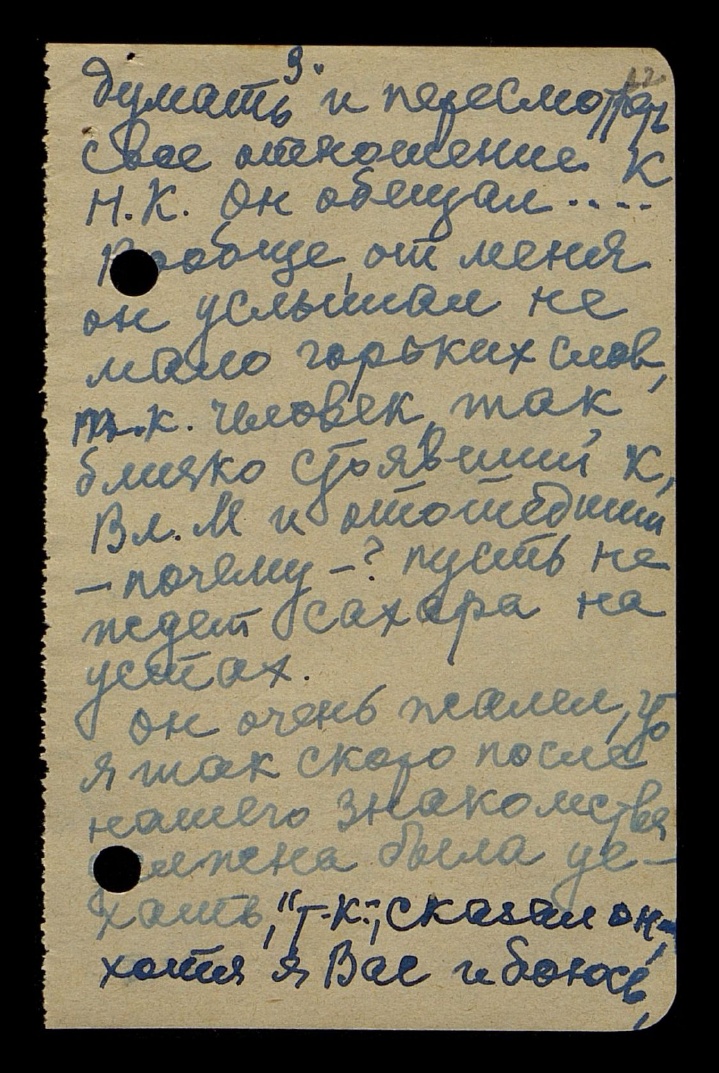 3.
42
думать и пересмотреть
свое отношение к
Н.К. Он обещал....
Вообще, от меня
он услышал не
мало горьких слов,
т.к. человек, так
близко стоявший к,
Вл. М и отошедший
— почему —? пусть не
ждет сахара на
устах.
он очень жалел, что
я так скоро после
нашего знакомства
должна была уе-
хать, "т-к.", сказал он —
хотя я Вас и боюсь,